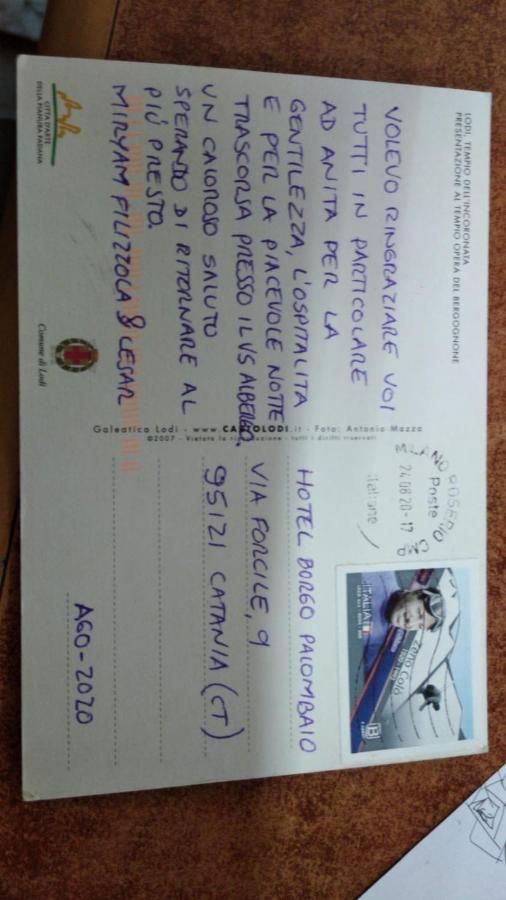 LODI, TEMPIO DELL'INCORONATA
PRESENTAZIONE AL TEMPIO OPERA DEL BERGOGNONE
VOLEVO RINGRAZIARE VOI
TUTTI IN PARTICOLARE
AD ANITA PER LA
GENTILEZZA, L'OSPITALITA
E PER LA PIACEVOLE NOTTE
TRASCORSA PRESSO IL VS ALBERGO,
UN CALOROSO SALUTO
SPERANDO DI RITORNARE AL
PIÙ PRESTO.
MIRYAM FILIZZOLA & CESAR
CITTÀ D'ARTE
DELLA PIANURA PADANA
Comune di Lodi
Galeatica Lodi - www.CARTOLODI.it - Foto: Antonio Mazza
©2007 - Vietata la riproduzione - tutti i diritti riservati
MILANO ROSERIO
Poste
24.08.20-17
italiane
ITALIA
Zeno Colò
B
HOTEL BORGO PALOMBAIO
VIA FORCILE, 9
95121 CATANIA (CT)
AGO-2020